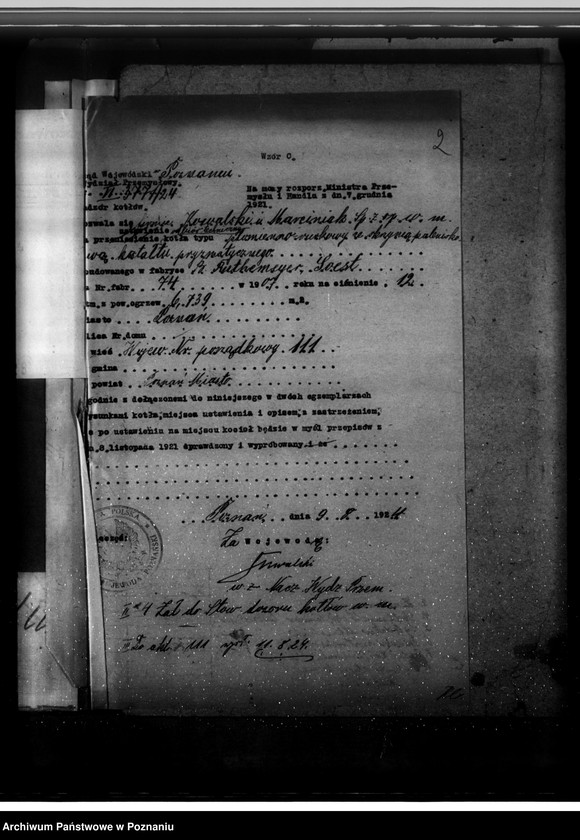 2
Wzór C.
ąd Wojewódzki Poznaniu
ydział Przemysłowy.
VI. 5771/24
Na mocy rozporz. Ministra Prze-
mysłu i Handlu z dn. 7. grudnia
1921.
dzór kotłów.
ezwala się firmie Kowalski i Marciniak Sp. z op. w. m.
ustawienie
przeniesienie kotła typu płomienno-rurkowy z
wą kształtu pryzmatycznego
udowanego w fabryce Soest
Nr. fabr. 74 w 1907 roku na ciśnienie 12
atm. z pow. ogrzew. 6,739 m.2.
iasto Poznań
lica Nr. domu
wieś Wojew. Nr. porządkowy 111
gmina
powiat Poznań Miasto
godnie z dołączonemi do niniejszego w dwóch egzemplarzach
rysunkami kotła, miejsca ustawienia i opisem, z zastrzeżeniem,
e po ustawieniu na miejscu kocioł będzie w myśl przepisów z
n. 8. listopada 1921 sprawdzony i wypróbowany
Poznań dnia 9. 8. 1924
Za Wojewodę:
Kowalski
w z. Nacz. Wydz. Przem.
Zał. do Stow. dozoru kotłów w. m.
Do akt 111 11.8.24.
Archiwum Państwowe w Poznaniu